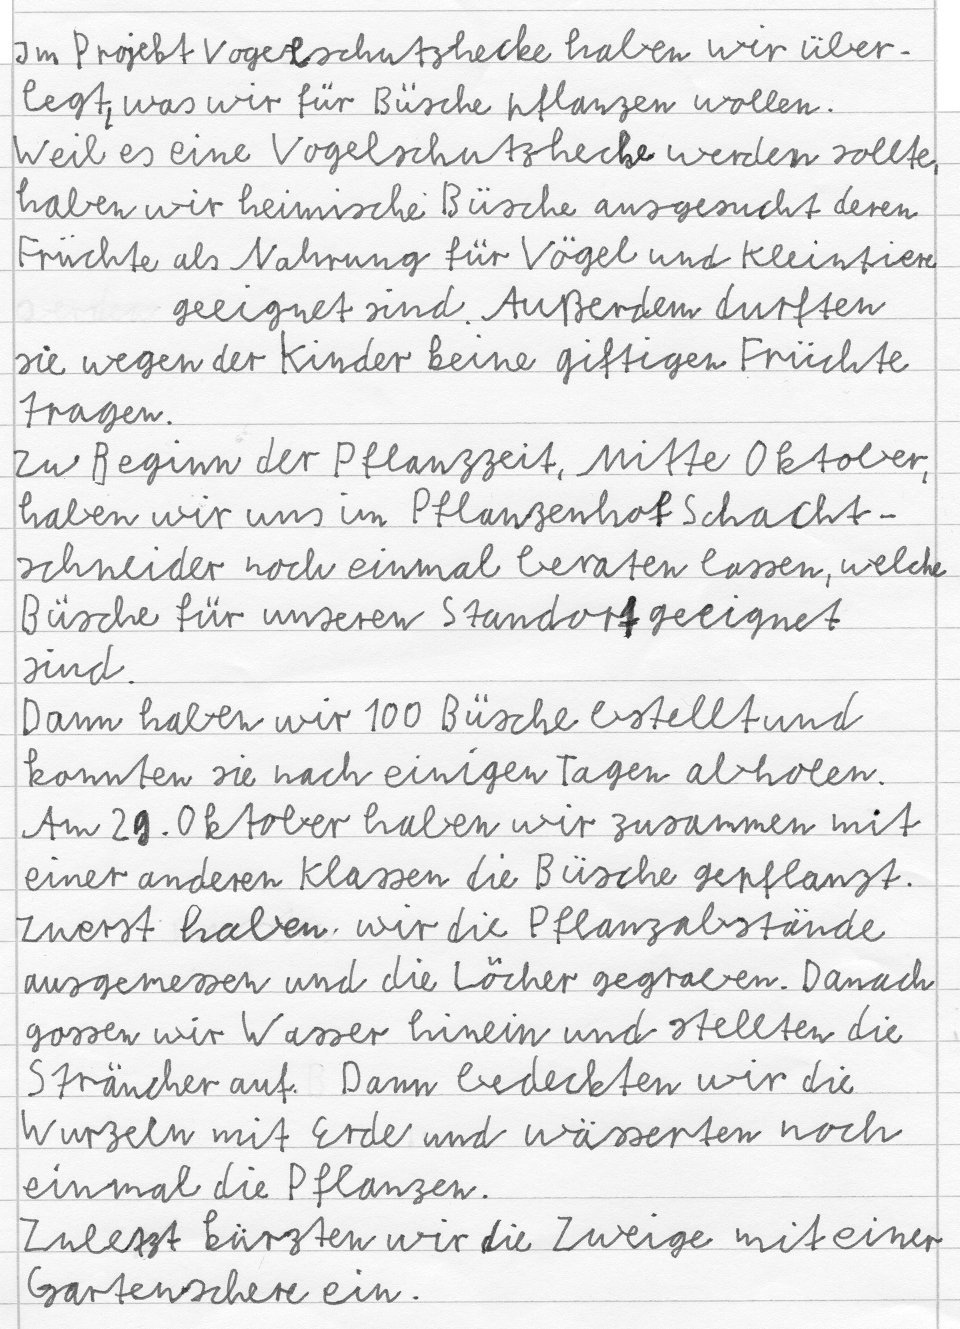 Im Projekt Vogelschutzhecke haben wir über-
legt, was wir für Büsche pflanzen wollen.
Weil es eine Vogelschutzhecke werden sollte,
haben wir heimische Büsche ausgesucht deren
Früchte als Nahrung für Vögel und Kleintiere
geeignet sind. Außerdem durften
sie wegen der Kinder keine giftigen Früchte
tragen.
Zu Beginn der Pflanzzeit, Mitte Oktober,
haben wir uns im Pflanzenhof Schacht-
schneider noch einmal beraten lassen, welche
Büsche für unseren Standort geeignet
sind.
Dann haben wir 100 Büsche bstellt und
konnten sie nach einigen Tagen abholen.
Am 29. Oktober haben wir zusammen mit
einer anderen Klassen die Büsche gepflanzt.
Zuerst haben wir die Pflanzabstände
ausgemessen und die Löcher gegraben. Danach
gossen wir Wasser hinein und stellten die
Sträucher auf. Dann bedeckten wir die
Wurzeln mit Erde und wässerten noch
einmal die Pflanzen.
Zuletzt kürzten wir die Zweige mit einer
Gartenschere ein.